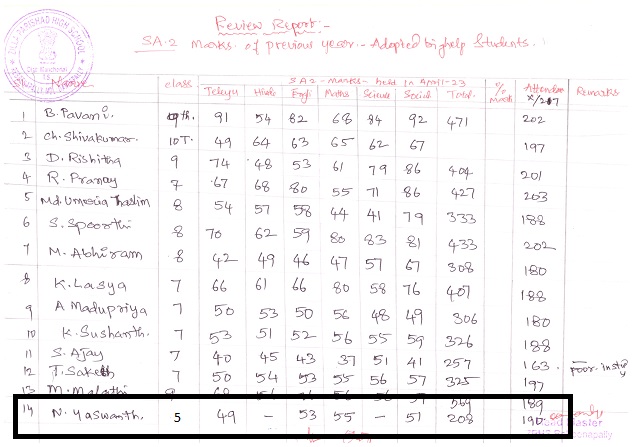 Review Report:-
SA.2 Marks of previous year - Adopted by help Students.
ZILLA PARISHAD HIGH SCHOOL
Name class SA2 - Marks - held in April-23 % Attendan Remarks
Telugu Hindi Engli Maths Science Social Total
1 B. Pavani. 9th. 91 54 82 68 84 92 471 202
2 Ch. Shivakumar. 10T. 49 64 63 65 62 67 197
3 D. Rishitha 9 74 48 53 61 79 86 404 201
4 R. Pranay 7 67 68 80 55 71 86 427 203
5 Md. 8 54 57 58 44 41 79 333 188
6 S. Spoorthi 8 70 62 59 80 83 81 433 202
7 M. Abhiram 8 42 49 46 47 57 67 308 180
8 K. Lasya 7 66 61 66 80 58 76 407 188
9 A Madupriya 7 50 53 50 56 48 49 306 180
10 K. Sushanth. 7 53 51 52 56 55 59 326 188
11 S. Ajay 7 40 45 43 37 51 41 257 163 poor
12 T. Saketh 7 50 54 53 55 56 57 325 197
13 M. Malathi 189
14 N. Yaswanth. 5 49 - 53 55 - 51 208 190